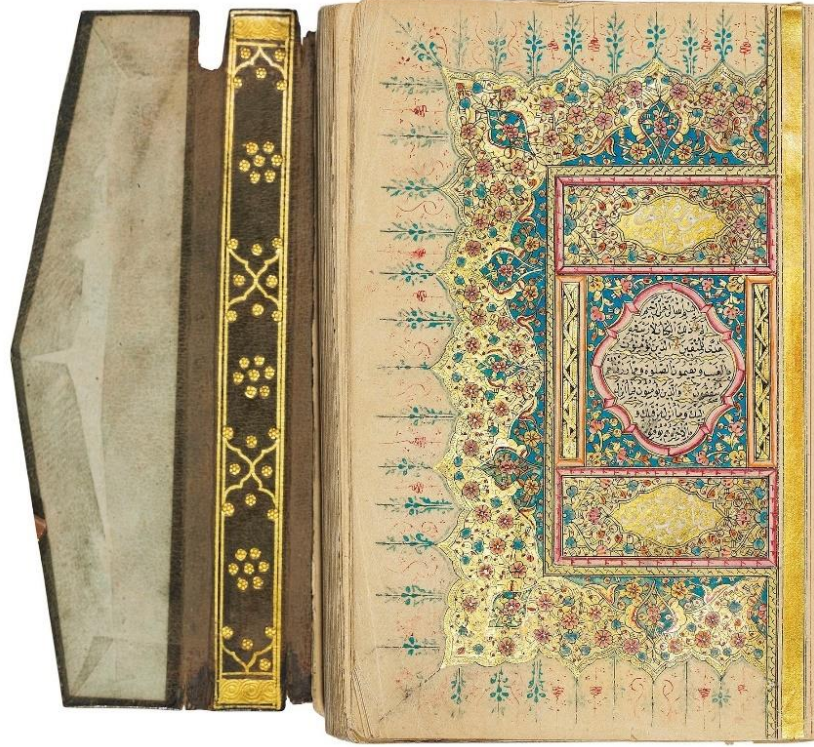 بسم الله الرحمن الرحيم
الم ذلك الكتاب لا ريب فيه
هدى للمتقين الذين يؤمنون
بالغيب ويقيمون الصلوة ومما رزقناهم
ينفقون والذين يؤمنون بما انزل
اليك وما انزل من قبلك
وبالاخرة هم يوقنون